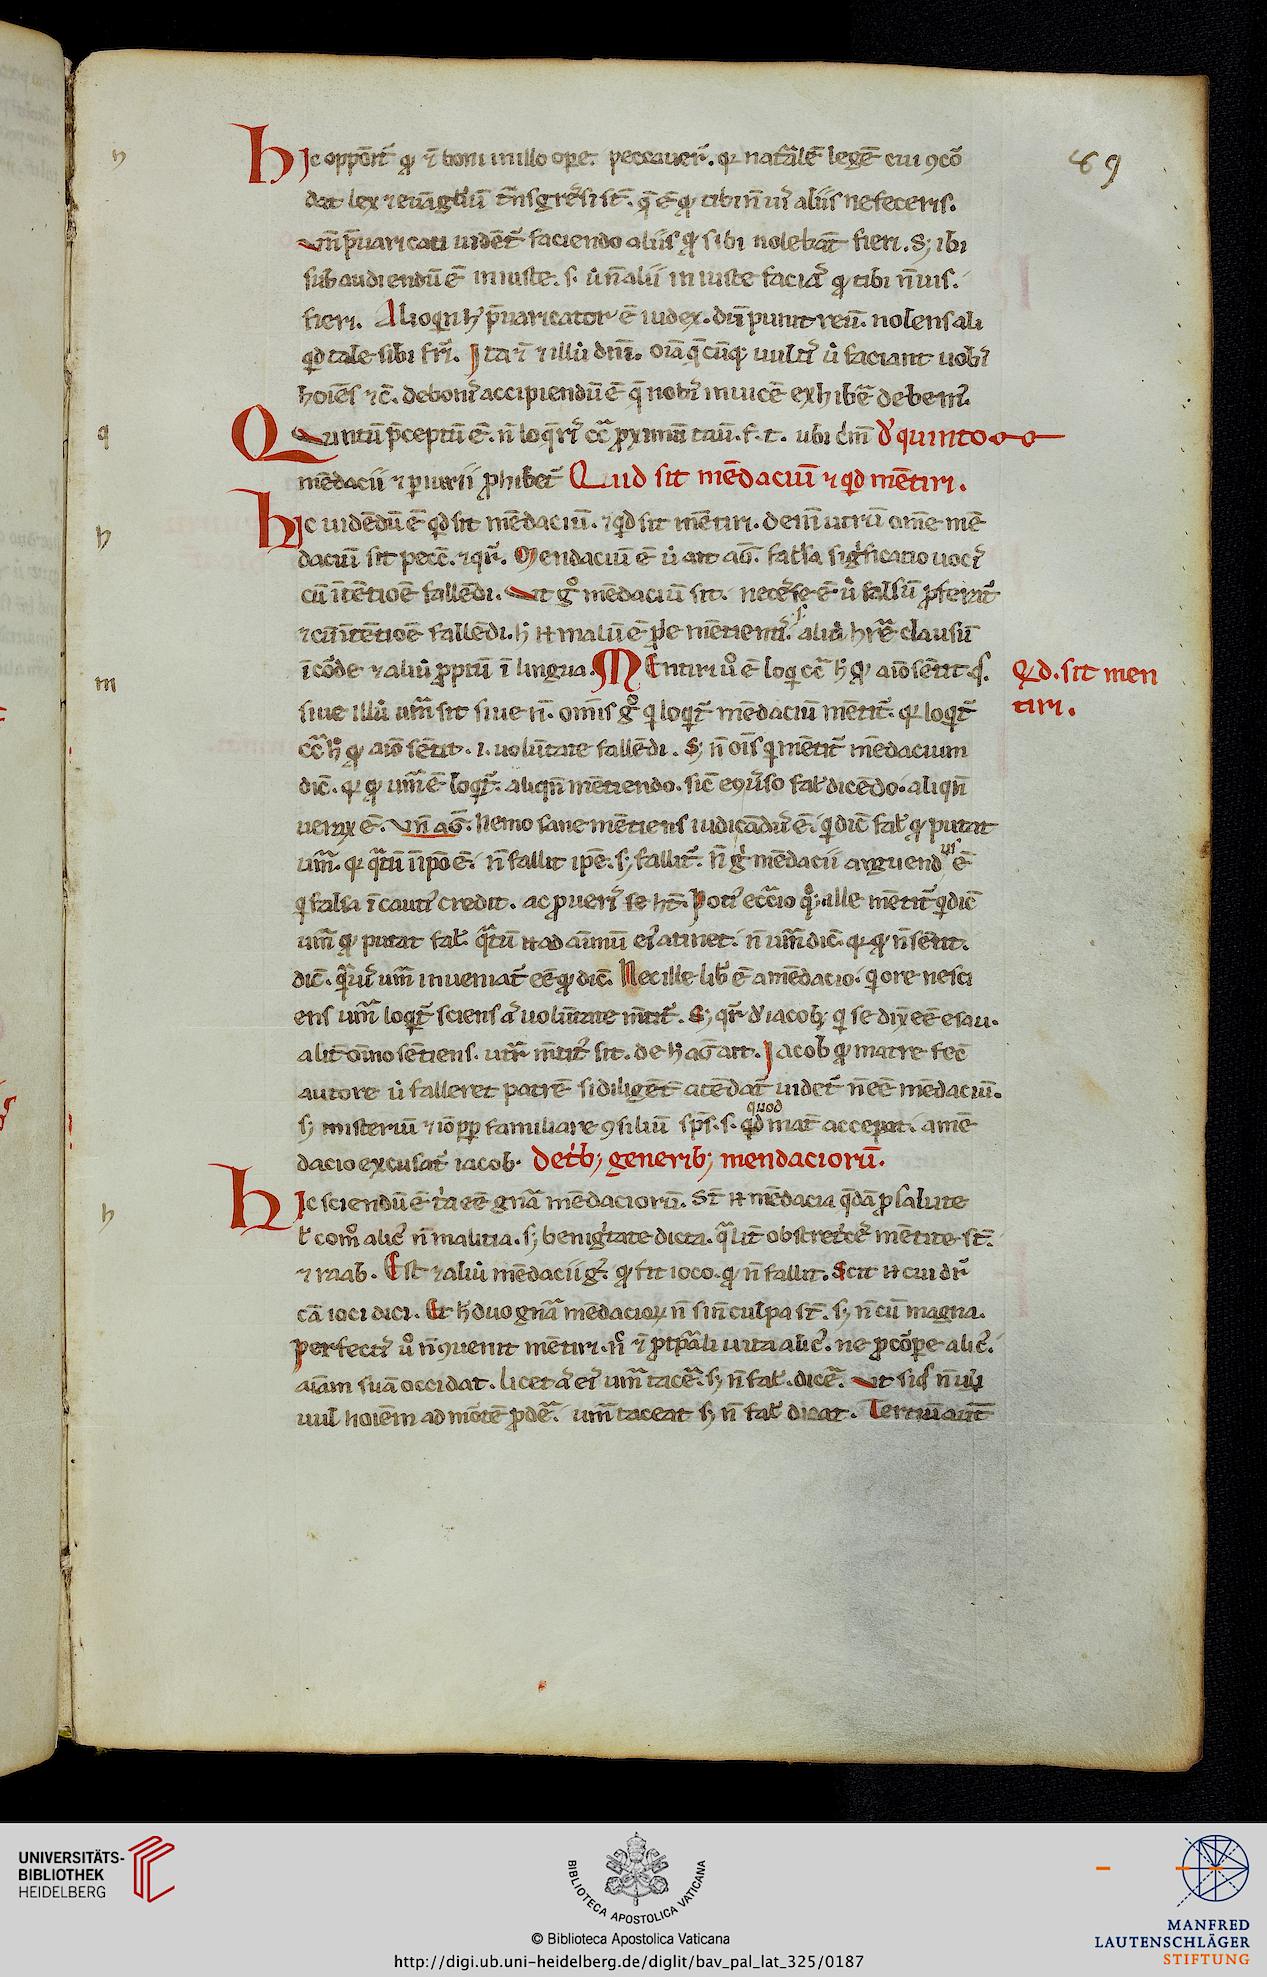 h
89
hic opponit̄ qđ ⁊ boni in illo ope. peccauer̄. qr natālē legē cui ꝯcō
dat lex ⁊ euāgliū t̄nsgr̄si st̄. q̄ ē qđ tibi n̄ uis aliis ne feceris.
Vn̄ p̄uaricati uidēt̄ faciendo aliis qđ sibi nolebāt fieri. Sꝫ ibi
subaudiendū ē iniuste. s. ut n̄ alii iniuste facias qđ tibi n̄ uis.
fieri. Alioqn h̄ p̄uaricator ē iudex. dū punit reū. nolens ali
qd tale sibi fri. Ita ⁊ ⁊ illud dni. oīa q̄cūqꝫ uultis ut faciant uobis
hoīes ⁊c̄. de bonis accipiendū ē q̄ nobis inuicē exhibē debem.
q
Quintū p̄ceptū ē. n̄ loq̄ris cc̄ꝓximū tuū. f. t. ubi cīm̄ d' quinto
mēdacii ⁊ ꝑiurii ꝓhibet̄ Quid sit mēdaciū ⁊ qd mētiri.
h
hic uidēdū ē qd sit mēdaciū. ⁊ qd sit mētiri. dein̄ utrū om̄e mē
daciū sit pecc̄. ⁊ qr̄. Mendaciū ē ut ait aḡ. falsa significatio uocis
cū ītētiōe fallēdi. Vt gͦ mēdaciū sit. necesse ē ut falsū ꝓferat̄
⁊ cū ītētiōe fallēdi. h̄ n malū ē ꝓp̄e mētientis. s. aliud hr̄e clausū
ī corde ⁊ aliud ꝓptū ī lingua. Mentiri uͦ ē loqi cc̄ h̄ qđ aīo sētit qs.
Qd. sit men
tiri.
m
siue illud uer̄ sit siue n̄. om̄is gͦ qi loqit̄ mēdaciū mētit̄. qr loqit̄
cc̄ h̄ qđ aīo sētit. i. uolūtate fallēdi. Sꝫ n̄ oīs qi mētit̄ mēdacium
dic̄. qr qđ uer̄ ē loqit̄. aliqn̄ mētiendo. sic̄ eꝯuerso fal̄ dicēdo. aliqn̄
uerax ē. Vn̄ aḡ. Nemo sane mētiens iudicādus ē. qi dic̄ fal̄ qđ putat
uer̄. qr qātū ī ip̄o ē. n̄ fallit ip̄e. sꝫ fallit̄. n̄ gͦ mēdacii arguendus ē
qi falsa īcautis credit. ac ꝓ ueris se h̄t. Potius ec̄rio qͦqꝫ ille mētit̄ qi dic̄
uer̄ qđ putat fal̄. qātū n ad animū eius atinet. n̄ uer̄ dic̄. qr qđ n̄ sētit.
dic̄. qāuis uer̄ inueniat̄ eē qđ dic̄. Nec ille lib' ē a mēdacio. qi ore nesci
ens uer̄ loqit̄ sciens aut̄ uolūtate mētit̄. Sꝫ qr̄ d' iacob. qi se dix̄ eē esau.
alit̄ oīno sētiens. utr̄ mētitus sit. de h̄ aḡ ait. Iacob qđ matre fec̄
autore ut falleret patrē si diligēt̄ atēdat̄ uidet̄ n̄ eē mēdaciū.
sꝫ misteriū ⁊ iō ꝓp̄ familiare ꝯsiliū sp̄s. s. qd mat̄ accepit. a mē
quod
dacio excusat̄ iacob. De t'bꝫ generibꝫ mendaciorū.
h
hic sciendū ē t'a eē gn̄a mēdaciorū. St̄ n mēdacia q̄dā ꝓ salute
ł comͦ alic' n̄ malitia. sꝫ benigitate dicta. qālit̄ obstretices mētite st̄.
⁊ raab. Est ⁊ aliud mēdacii g'. qđ fit ioco. qđ n̄ fallit. Scit n cui dr̄
cā ioci dici. Et h̄ duo gn̄a mēdacioꝝ n̄ sin̄ culpa st̄. sꝫ n̄ cū magna.
Perfectis uͦ n̄ ꝯuenit mētiri. n̄ ⁊ ꝓ tp̄ali uita alic'. ne ꝓ corpe alic'.
aīam suā occidat. licet aut̄ eis uer̄ tacē. sꝫ n̄ fal̄. dicē. Vt siqs n̄
uul hoiēm ad mortē ꝓdē. uer̄ taceat sꝫ n̄ fal̄ dicat. Tertiū aut̄
UNIVERSITÄTS-
BIBLIOTHEK
HEIDELBERG
BIBLIOTECA APOSTOLICA VATICANA
© Biblioteca Apostolica Vaticana
http://digi.ub.uni-heidelberg.de/diglit/bav_pal_lat_325/0187
MANFRED
LAUTENSCHLÄGER
STIFTUNG